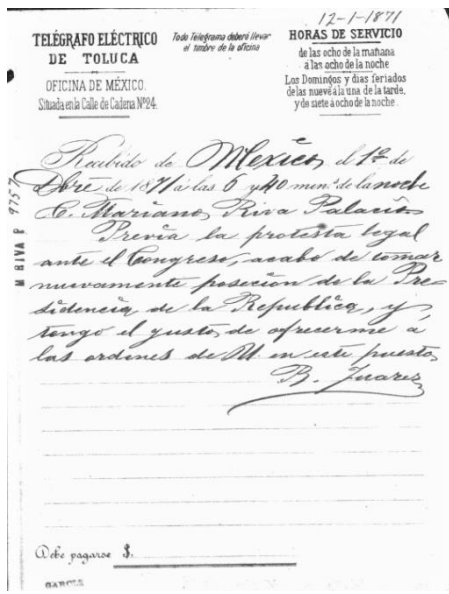 12-1-1871
TELÉGRAFO ELÉCTRICO
DE TOLUCA
OFICINA DE MÉXICO.
Situada en la Calle de Cadena Nº 24.
Todo Telégrama deberá llevar
el timbre de la oficina
HORAS DE SERVICIO
de las ocho de la mañana
á las ocho de la noche
Los Domingos y dias feriados
de las nueve á la una de la tarde,
y de siete á ocho de la noche.
Recibido de Mexico, el 1º de
Dbre de 1871 á las 6 y 40 min.s de la noche
C. Mariano Riva Palacio
Previa la protesta legal
ante el Congreso, acabo de tomar
nuevamente posecion de la Pre=
sidencia, de la Republica, y,
tengo el gusto de ofrecerme a
las ordenes de U. en este puesto
B. Juarez
M RIVA P 9757
Debe pagarse $.
GARCIA